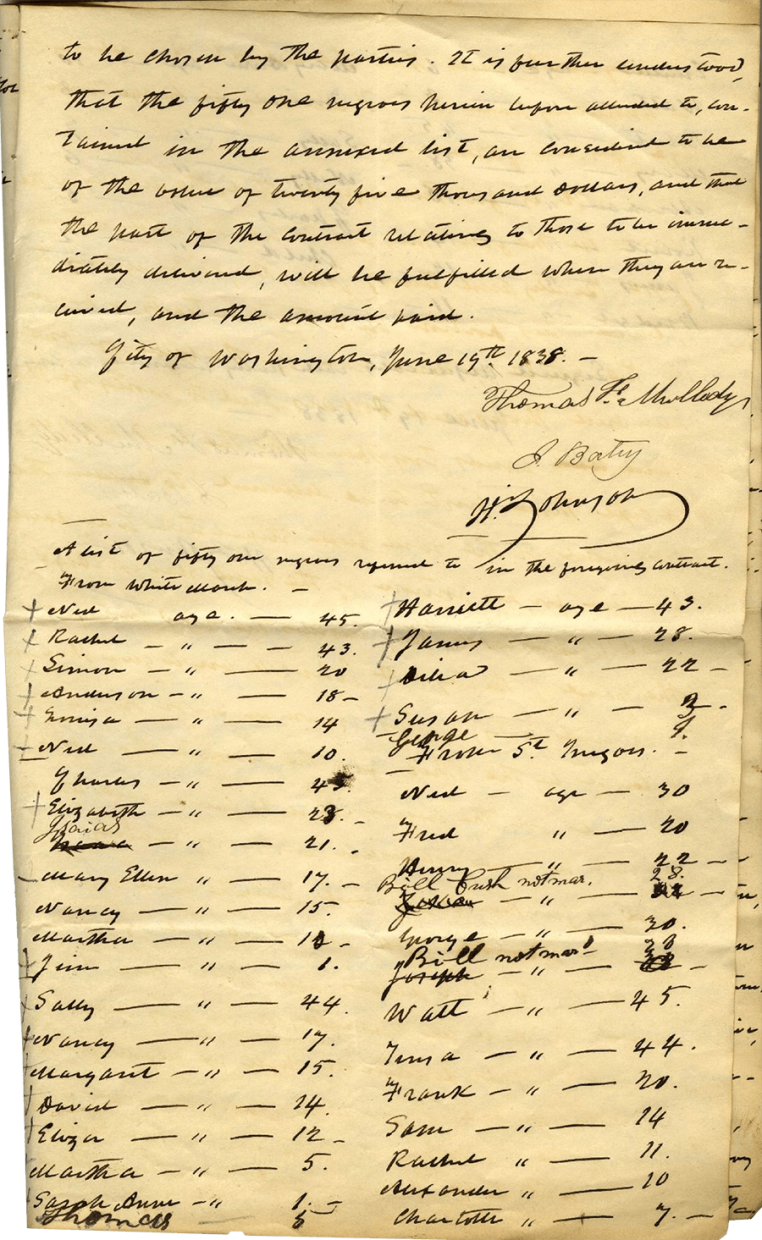 to be chosen by the parties. It is further understood,
that the fifty one negroes herein before alluded to, con-
tained in the annexed list, are considered to be
of the value of twenty five thousand Dollars, and that
the part of the contract relating to those to be imme-
diately delivered, will be fulfilled when they are re-
ceived, and the amount paid.
City of Washington, June 19th 1838. —
Thomas F. Mulledy
J. Batey
H. Johnson
A list of fifty one negroes referred to in the foregoing contract.
From White Marsh. —
+ Ned age. — 45.
+ Rachel — " — 43.
+ Simon — " — 20
+ Anderson — " — 18 —
+ Louisa — " — 14
— Ned — " — 10.
Charles — "
+ Elizabeth — " — 23. —
Isaias
— " — 21. —
— Mary Ellen — " — 17. —
Nancy — " — 15.
Martha — " — —
+ Jim — " — 1.
+ Sally — " — 44.
+ Nancy — " — 17.
+ Margaret — " — 15.
+ David — " — 14.
+ Eliza — " — 12 —
Martha — " — 5.
Sarah Anne — " 1. —
Thomas —
+ Harriett — age — 43.
+ James — " — 28.
+ Delia — " — 22 —
+ Susan — " —
George 9.
From St. Inigoes. —
Ned — age — 30
Fred " — 20
Henry — " — 22 —
Bill Cush not mar. 28.
— " —
George — " — 20.
Bill not mar 28
Joseph — " — —
Watt — " — 45.
Teresa — " — 44.
Frank — " — 20.
Sam — " — 14
Rachel " — 11.
Alexander " — 10
Charlotte " — 7. —